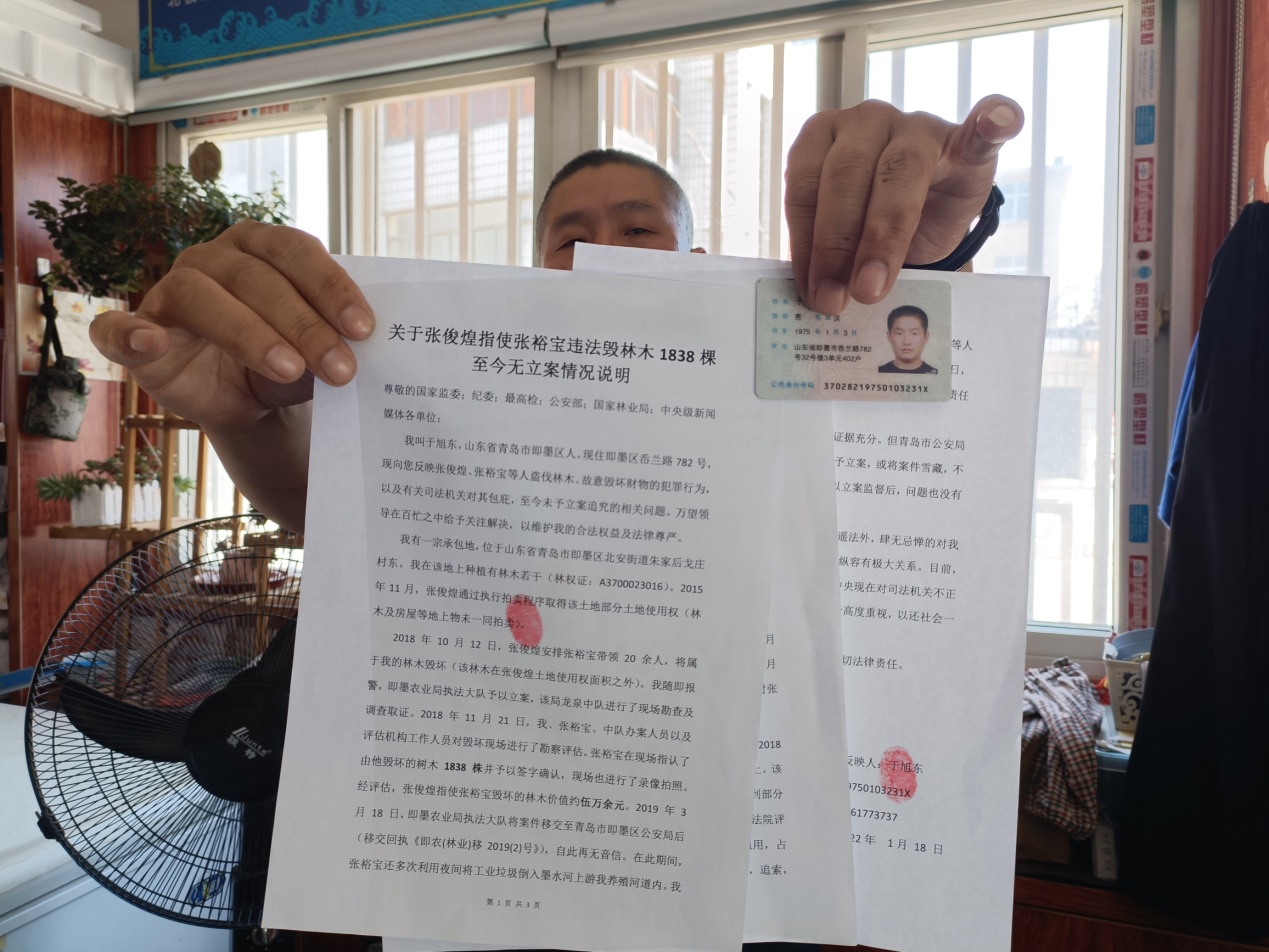 关于张俊煌指使张裕宝违法毁林木 1838 棵
至今无立案情况说明
尊敬的国家监委；纪委；最高检；公安部；国家林业局；中央级新闻
媒体各单位：
我叫于旭东，山东省青岛市即墨区人。现住即墨区岙兰路 782 号，
现向您反映张俊煌、张裕宝等人盗伐林木、故意毁坏财物的犯罪行为，
以及有关司法机关对其包庇，至今未予立案追究的相关问题。万望领
导在百忙之中给予关注解决，以维护我的合法权益及法律尊严。
我有一宗承包地，位于山东省青岛市即墨区北安街道朱家后戈庄
村东。我在该地上种植有林木若干（林权证：A3700023016）。2015
年 11 月，张俊煌通过执行拍卖程序取得该土地部分土地使用权（林
木及房屋等地上物未一同拍卖）。
2018 年 10 月 12 日，张俊煌安排张裕宝带领 20 余人，将属
于我的林木毁坏（该林木在张俊煌土地使用权面积之外）。我随即报
警，即墨农业局执法大队予以立案，该局龙泉中队进行了现场勘查及
调查取证。2018 年 11 月 21 日，我、张裕宝、中队办案人员以及
评估机构工作人员对毁坏现场进行了勘察评估。张裕宝在现场指认了
由他毁坏的树木 1838 株并予以签字确认，现场也进行了录像拍照。
经评估，张俊煌指使张裕宝毁坏的林木价值约伍万余元。2019 年 3
月 18 日，即墨农业局执法大队将案件移交至青岛市即墨区公安局后
（移交回执《即农(林业)移 2019(2)号》），自此再无音信。在此期间，
张裕宝还多次利用夜间将工业垃圾倒入墨水河上游我养殖河道内。我
第 1 页 共 3 页
男 汉
1975 年 1 月 3 日
山东省即墨市岙兰路782
号32号楼3单元402户
公民身份号码 37028219750103231X
等人
日，
责任
证据充分。但青岛市公安局
予立案，或将案件雪藏，不
以立案监督后，问题也没有
遥法外，肆无忌惮的对我
纵容有极大关系。目前，
中央现在对司法机关不正
高度重视，以还社会一
切法律责任。
反映人：于旭东
9750103231X
61773737
22 年 1 月 18 日
月
月
张
2018
。该
到部分
法院评
用，占
，追索，
llduots